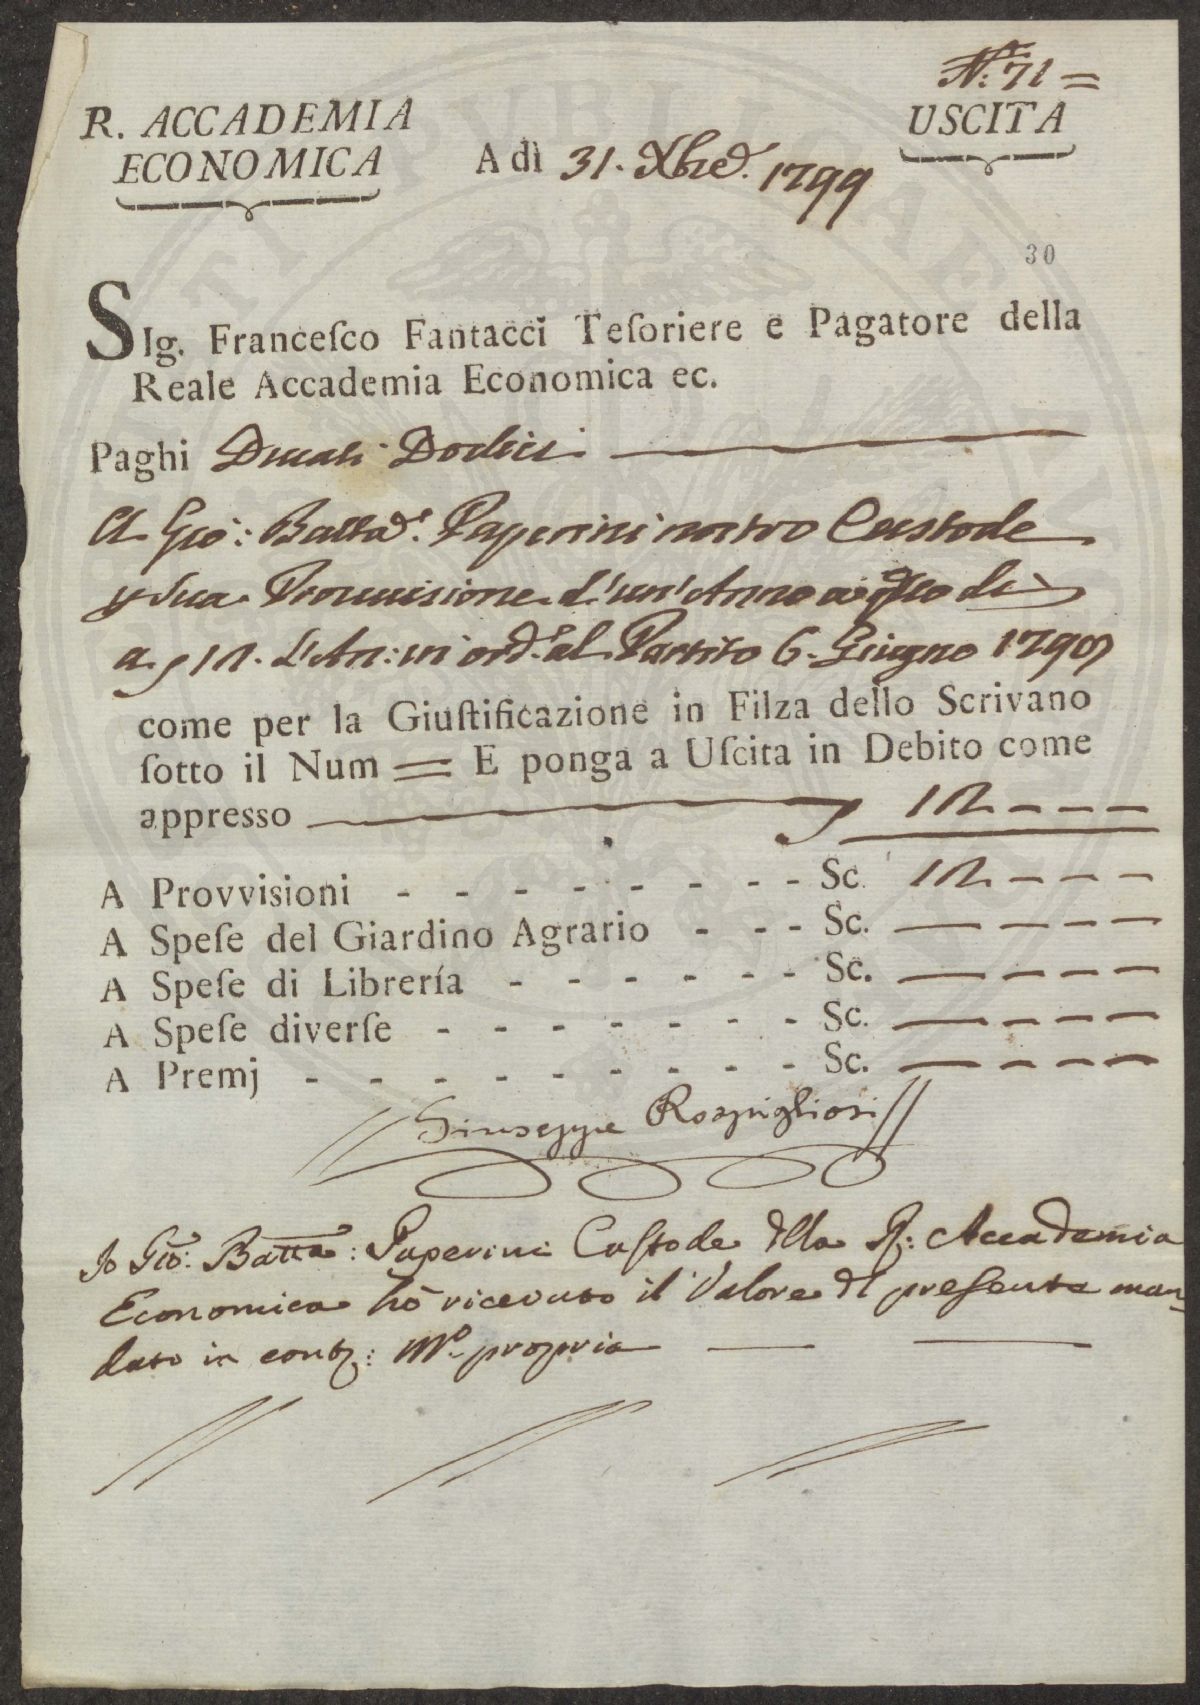 N.º 71 =
R. ACCADEMIA
ECONOMICA
USCITA
A dì 31. Xbre. 1799
30
SIg. Franceſco Fantacci Teſoriere e Pagatore della
Reale Accademia Economica ec.
Paghi Ducati Dodici
A Gio: Batta. Paperini nostro Custode
p sua Provvisione d'un'Anno a tto dì
a 12. L'An: in ord.e al Partito 6. Giugno
come per la Giuſtificazione in Filza dello Scrivano
ſotto il Num = E ponga a Uſcita in Debito come
appresso 12. - - -
A Provvisioni - - - - - - - - Sc. 12. - - -
A Speſe del Giardino Agrario - - - Sc. - - - -
A Speſe di Librería - - - - - - Sc. - - - -
A Speſe diverſe - - - - - - - Sc. - - - -
A Premj - - - - - - - - - Sc. - - - -
Giuseppe Rospigliosi
Io Gio: Batta: Paperini Cuſtode dlla R: Accademia
Economica hò ricevuto il Valore dl preſente man=
dato in cont: M.º propria